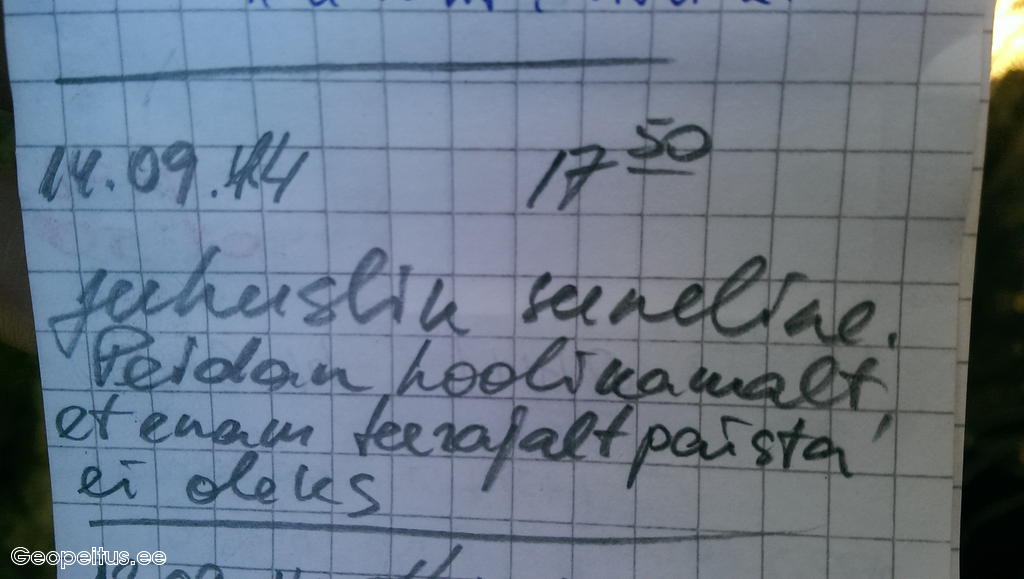 14.09.14 17 50
juhuslik seneline.
Peidan hoolikamalt,
et enam teerajalt paista
ei oleks
Geopeitus.ee